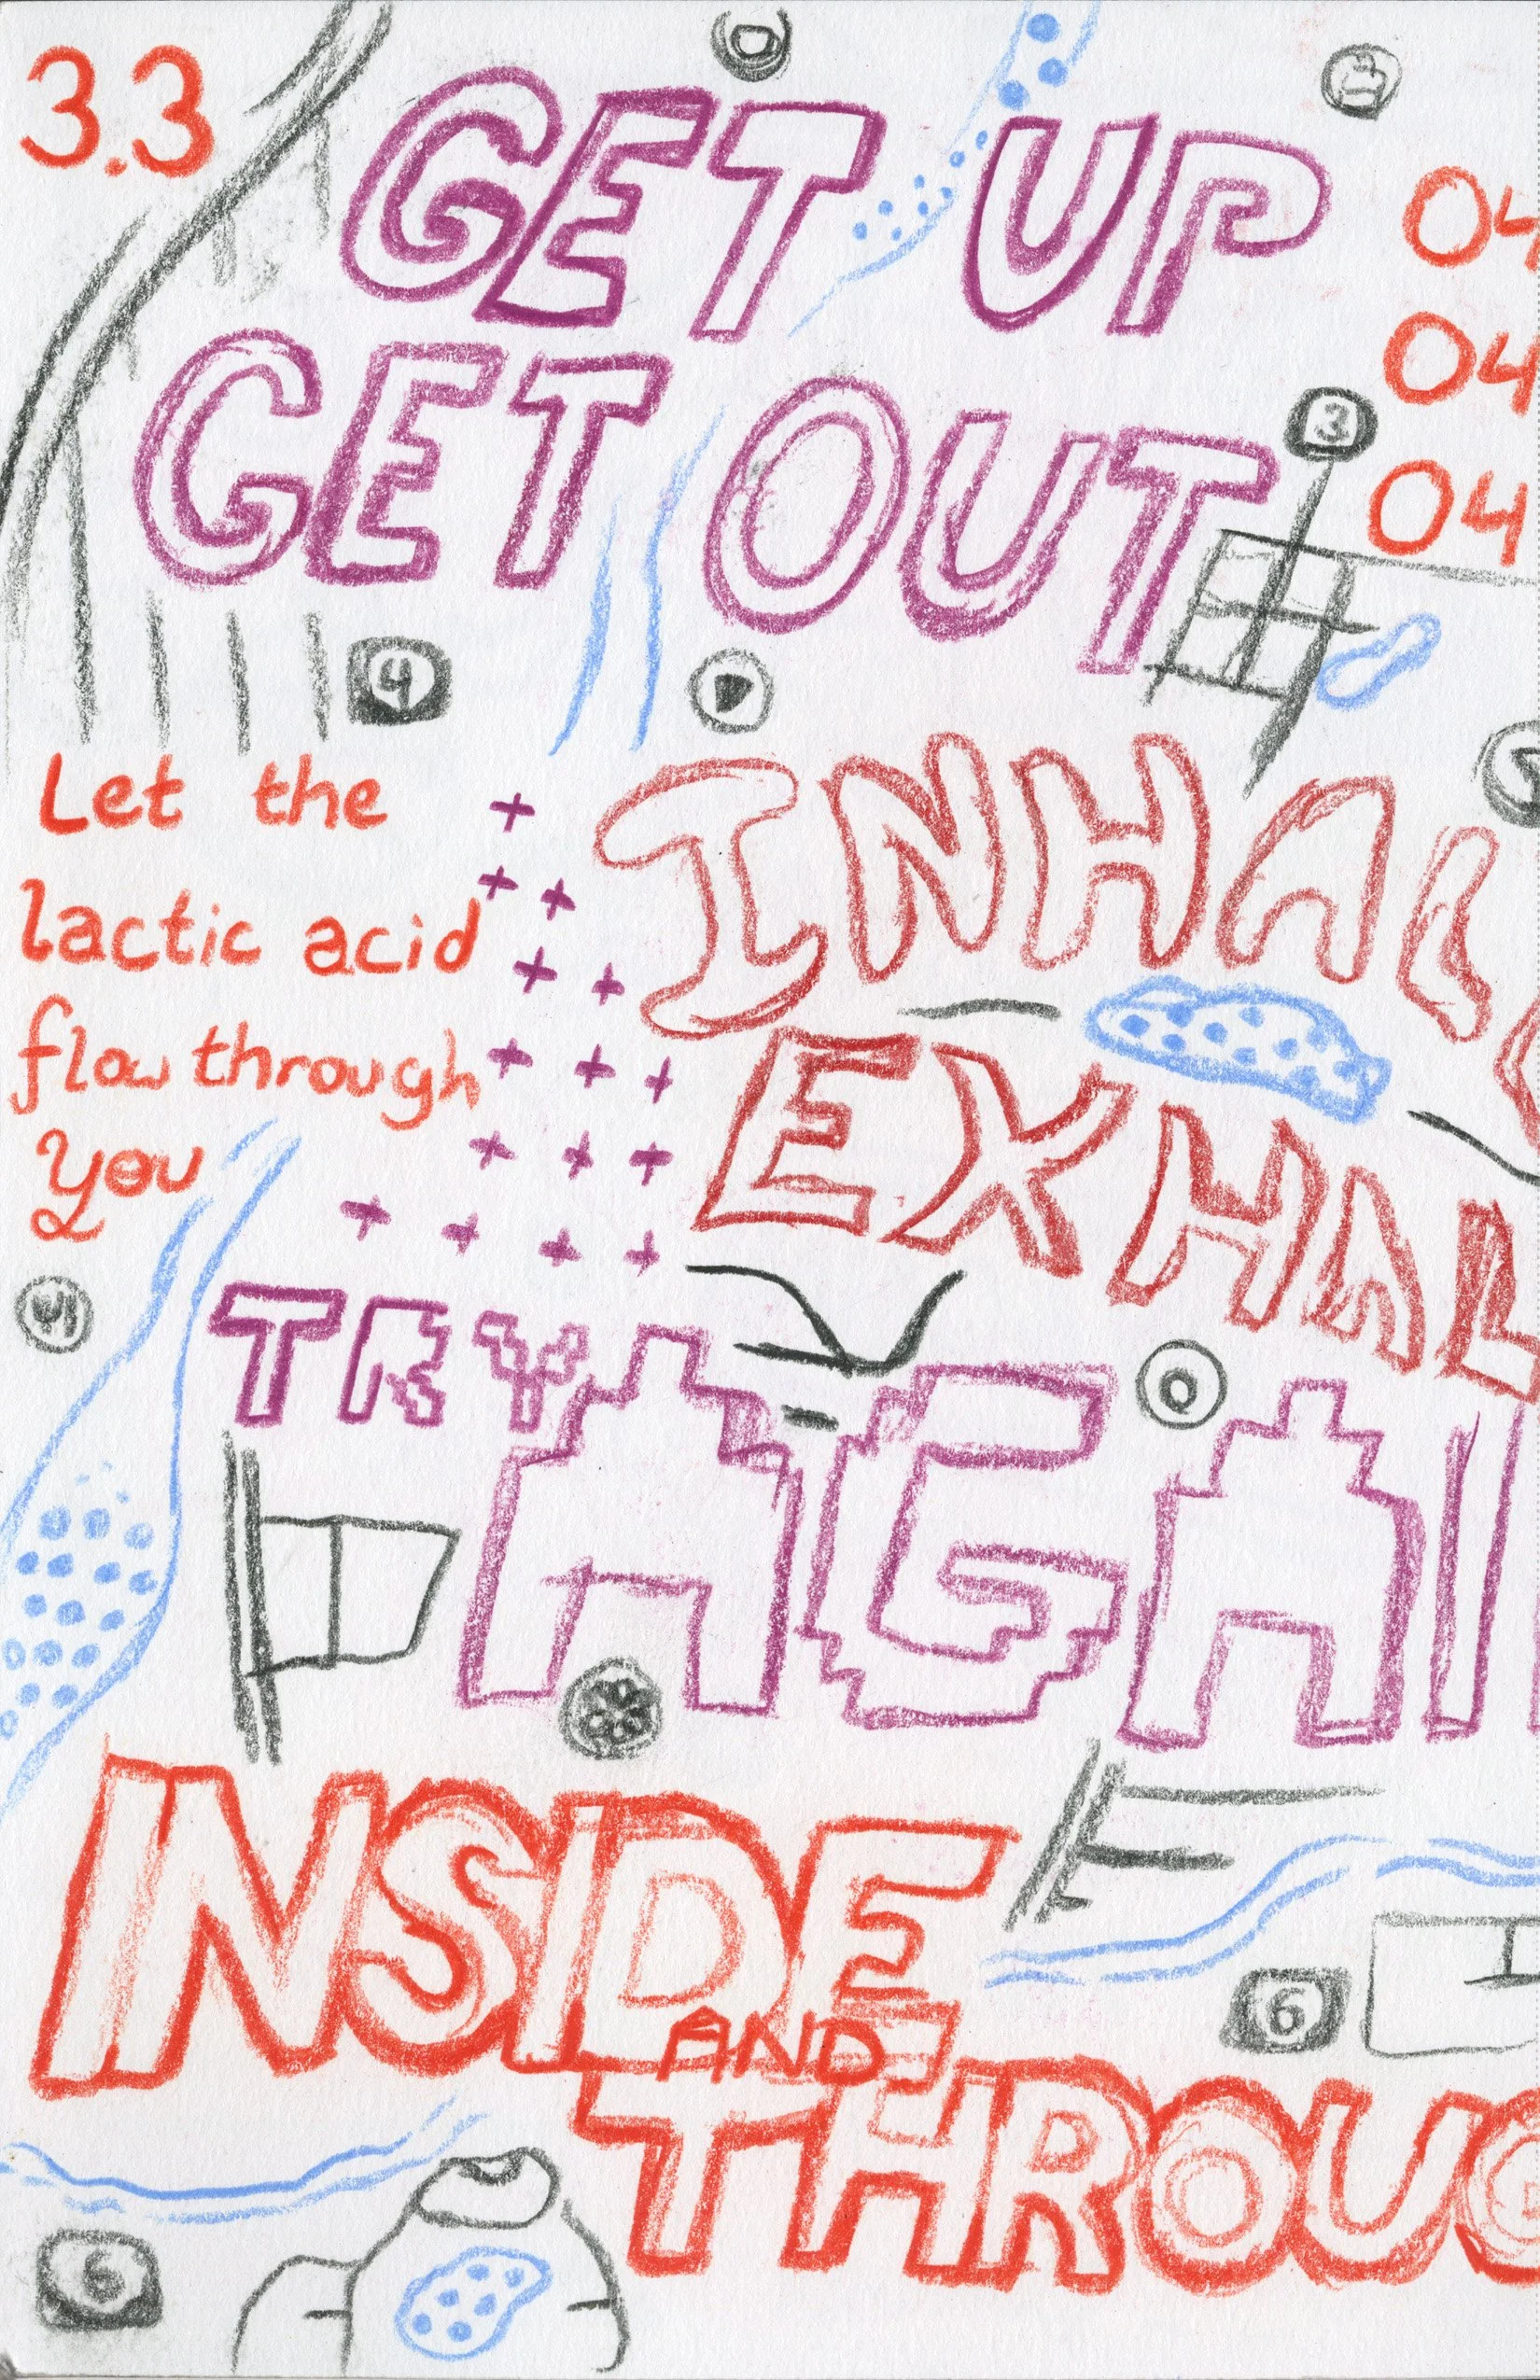 3.3
GET UP
04
GET OUT
04
3
04
4
Let the
lactic acid
flow through
you
INHAL
EXHAL
TRY
AGAI
0
INSIDE
AND
THROUG
6
6